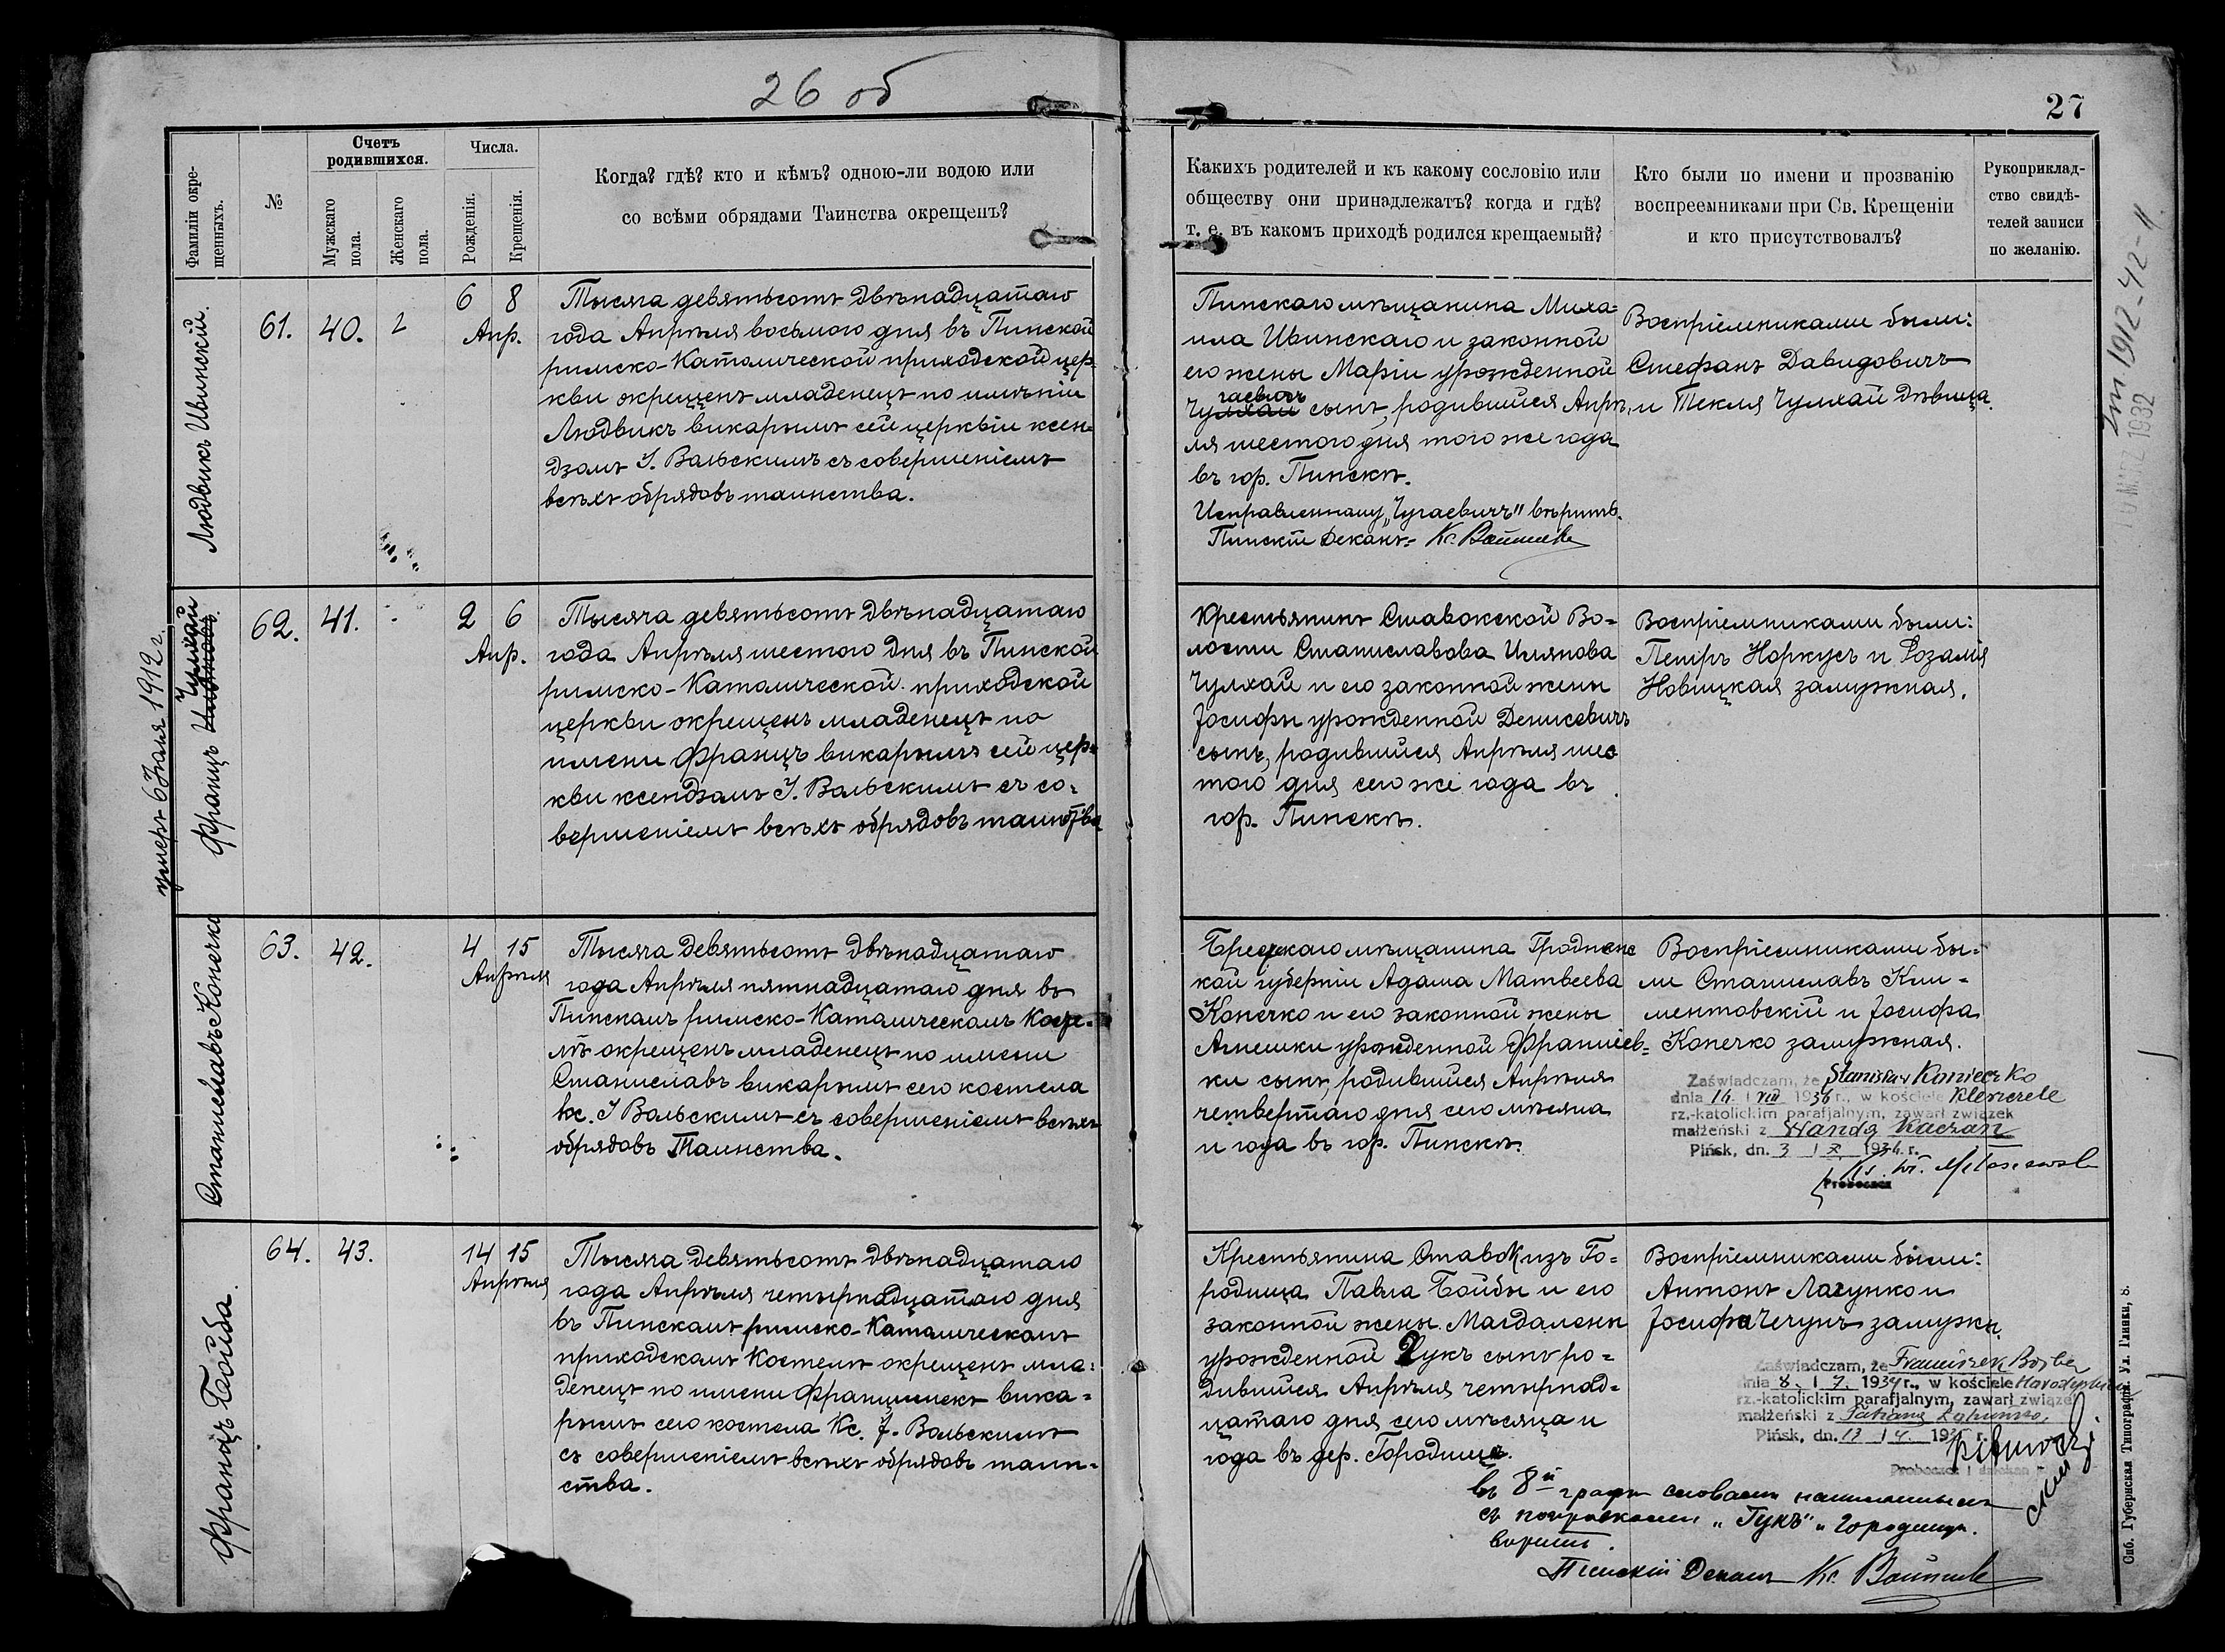 26 об
27
Фамиліи окре-
щенныхъ.
№
Счетъ
родившихся.
Мужскаго
пола.
Женскаго
пола.
Числа.
Рожденія.
Крещенія.
Когда? гдѣ? кто и кѣмъ? одною-ли водою или
со всѣми обрядами Таинства окрещенъ?
Какихъ родителей и къ какому сословію или
обществу они принадлежатъ? когда и гдѣ?
т. е. въ какомъ приходѣ родился крещаемый?
Кто были по имени и прозванію
воспреемниками при Св. Крещеніи
и кто присутствовалъ?
Рукоприклад-
ство свидѣ-
телей записи
по желанію.
Людвикъ Ивинскій.
61.
40.
6 8
Апр.
Тысяча девятьсотъ двѣнадцатаго
года Апрѣля восьмого дня въ Пинской
римско-Католической приходской цер-
кви окрещенъ младенецъ по имѣніи
Людвикъ викарымъ сей церквіи ксен-
дзомъ І. Вальскимъ съ совершеніемъ
всѣхъ обрядовъ таинства.
Пинскаго мѣщанина Миха-
ила Ивинскаго и законной
его жены Маріи урожденной
гаевичъ
Чулхай сынъ, родившійся Апрѣ-
ля шестого дня того же года
въ гор. Пинскѣ.
Исправленному „Чугаевичъ" вѣрить.
Пинскій Деканъ- Кс.
Воспріемниками были:
Стефанъ Давидовичъ
и Текля Чулхай дѣвица.
умеръ 6 Іюля 1912 г.
Францъ
Чулхай
62.
41.
2 6
Апр.
Тысяча девятьсотъ двѣнадцатаго
года Апрѣля шестого дня въ Пинской
римско-Католической приходской
церкви окрещенъ младенецъ по
имени Францъ викарымъ сей цер-
кви ксендзомъ І. Вальскимъ съ со-
вершеніемъ всѣхъ обрядовъ таинства
Крестьянинъ Ставокской Во-
лости Станиславова Ильянова
Чулхай и его законной жены
Іосифы урожденной Денисевичъ
сынъ, родившійся Апрѣля шес
того дня сего же года въ
гор. Пинскѣ.
Воспріемниками были:
Петръ Норкусъ и Розалія
Новицкая замужная.
Станиславъ Конечко
63.
42.
4 15
Апрѣля
Тысяча девятьсотъ двѣнадцатаго
года Апрѣля пятнадцатаго дня въ
Пинскомъ римско-Католическомъ Косте-
лѣ окрещенъ младенецъ по имени
Станиславъ викарымъ сего костела
кс. І Вальскимъ съ совершеніемъ всѣхъ
обрядовъ Таинства.
мѣщанина Гроднен
кой губерніи Адама Матвеева
Конечко и его законной жены
Агнешки урожденной Франчев-
ки сынъ, родившійся Апрѣля
четвертаго дня сего мѣсяца
и года въ гор. Пинскѣ.
Воспріемниками бы-
ли Станиславъ Кли-
ментовскій и Іосифа
Конечко замужная.
Zaświadczam, że Stanisław Konieczko
dnia 14. VIII 1934 r., w kościele Kleszczele
rz.-katolickim parafjalnym, zawarł związek
małżeński z Wandą Kaczan
Pińsk, dn. 3 X 1934. r.
Proboszcz
Францъ Бойба.
64.
43.
14 15
Апрѣля
Тысяча девятьсотъ двѣнадцатаго
года Апрѣля четырнадцатаго дня
въ Пинскомъ римско-Католическомъ
приходскомъ Костелѣ окрещенъ мла-
денецъ по имени Францишекъ вика-
рымъ сего костела Кс. І. Вальскимъ
съ совершеніемъ всѣхъ обрядовъ таин-
ства.
Крестьянина Ставок изъ Го-
родища Павла Бойбы и его
законной жены Магдалены
урожденной Гукъ сынъ ро-
дившійся Апрѣля четырнад-
цатаго дня сего мѣсяца и
года въ дер. Городище.
Воспріемниками были:
Антонъ Лагунко и
Іосифа Чечунъ замужн.
Zaświadczam, że Franciszek Bojba
dnia 8. 1934 r., w kościele
rz.-katolickim parafjalnym, zawarł związek
małżeński z
Pińsk, dn. 13 193 r.
въ 8й графѣ словамъ написаннымъ
съ поправками „Гукъ" „Городище.
вѣрить.
Пинскій Деканъ Кс.
1912-42-11
1932
Спб. Губернская Типографія. Ул. Глинки, 8.